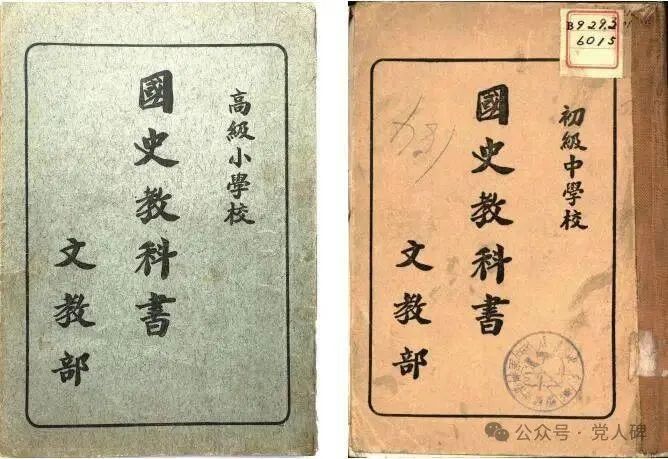 高級小學校
國史教科書
文教部
B929.3
6015
初級中學校
國史教科書
文教部
公众号·党人碑